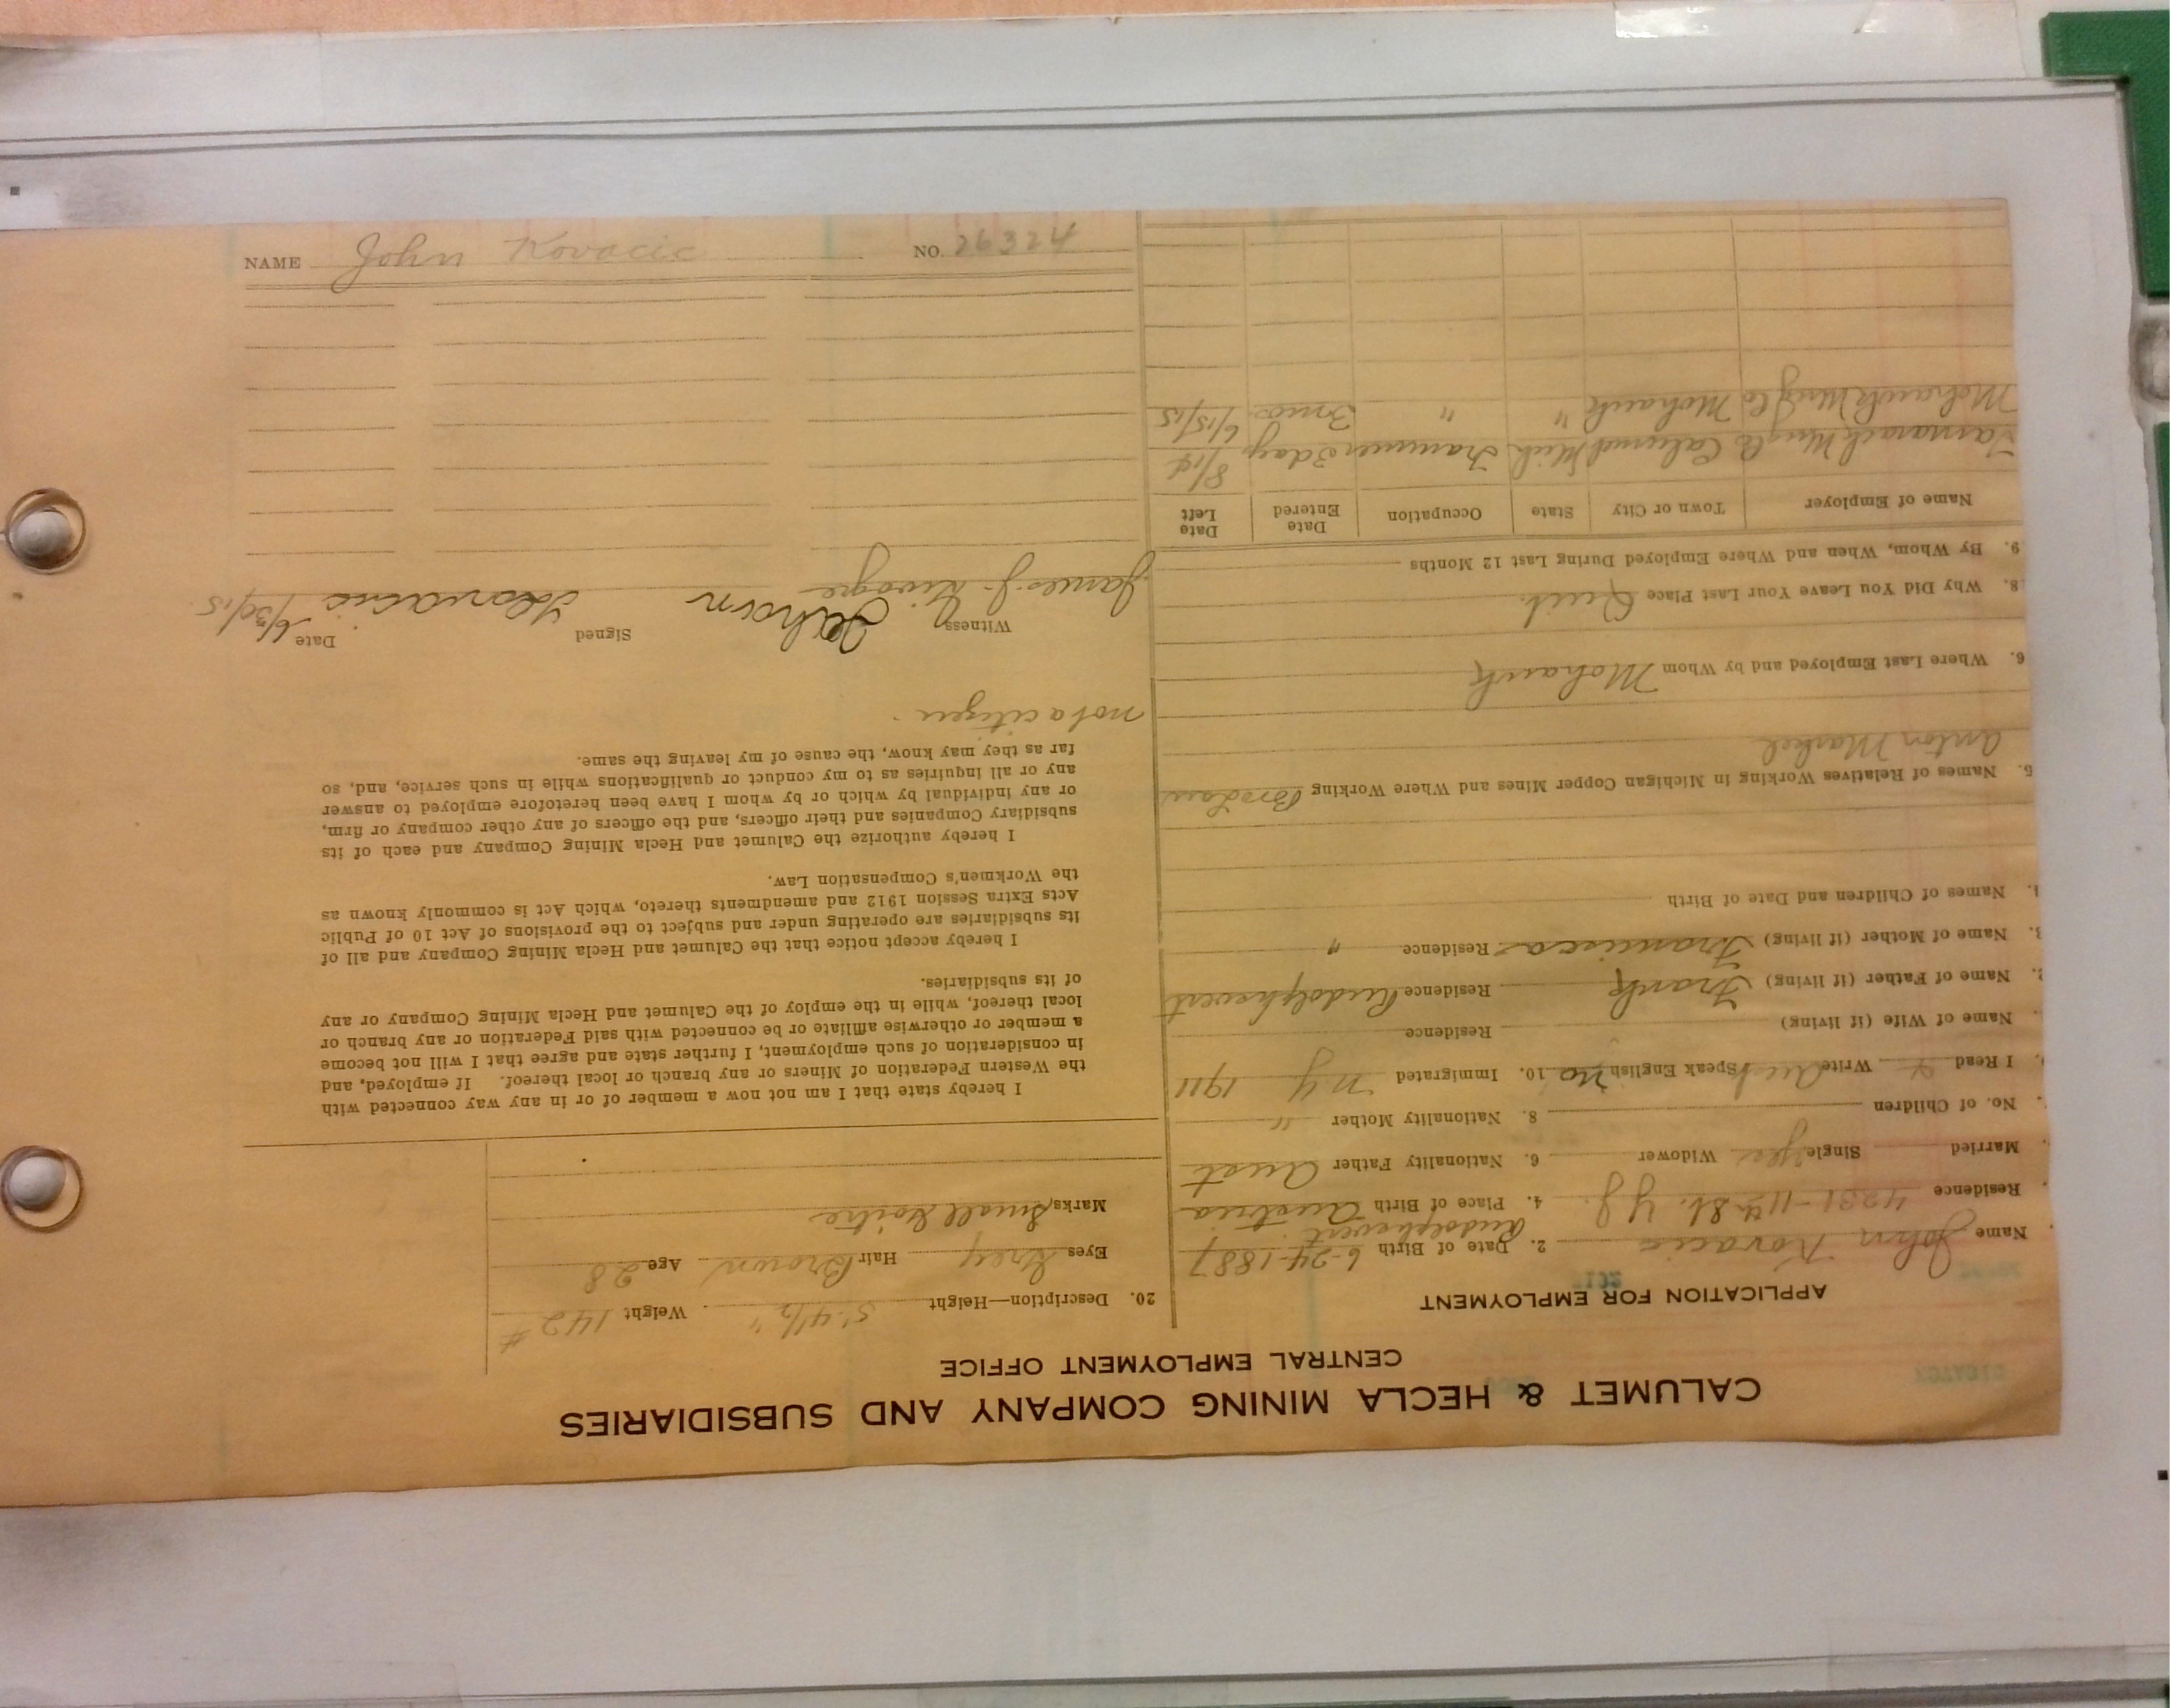 CALUMET & HECLA MINING COMPANY AND SUBSIDIARIES
CENTRAL EMPLOYMENT OFFICE
APPLICATION FOR EMPLOYMENT
Name John Kovacic 2. Date of Birth 6-24-1887
Residence 4231-11th St. Y.J. 4. Place of Birth Austria
Married Single yes Widower 6. Nationality Father Aust
No. of Children 8. Nationality Mother "
I Read Write Speak English no 10. Immigrated N.Y. 1911
Name of Wife (if living) Residence
2. Name of Father (if living) Frank Residence Rudolphswert
3. Name of Mother (if living) Francisca Residence "
4. Names of Children and Date of Birth
5. Names of Relatives Working in Michigan Copper Mines and Where Working
Anton
6. Where Last Employed and by Whom Mohawk
8. Why Did You Leave Your Last Place Quit.
9. By Whom, When and Where Employed During Last 12 Months
Name of Employer Town or City State Occupation Date Entered Date Left
Tamarack Mng Co Calumet Mich Trammer 3 days 8/14
Mohawk Mng Co Mohawk " " 3 mos 6/15/15
20. Description—Height 5' 4½" Weight 142 #
Eyes Grey Hair Brown Age 28
Marks Small Goitre
I hereby state that I am not now a member of or in any way connected with
the Western Federation of Miners or any branch or local thereof. If employed, and
in consideration of such employment, I further state and agree that I will not become
a member or otherwise affiliate or be connected with said Federation or any branch or
local thereof, while in the employ of the Calumet and Hecla Mining Company or any
of its subsidiaries.
I hereby accept notice that the Calumet and Hecla Mining Company and all of
its subsidiaries are operating under and subject to the provisions of Act 10 of Public
Acts Extra Session 1912 and amendments thereto, which Act is commonly known as
the Workmen's Compensation Law.
I hereby authorize the Calumet and Hecla Mining Company and each of its
subsidiary Companies and their officers, and the officers of any other company or firm,
or any individual by which or by whom I have been heretofore employed to answer
any or all inquiries as to my conduct or qualifications while in such service, and, so
far as they may know, the cause of my leaving the same.
not a citizen.
Witness Signed Date 6/30/15
James J.
NAME John Kovacic NO. 26324